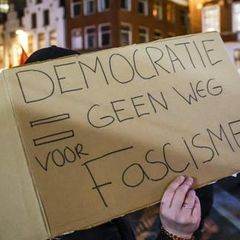 DEMOCRATIE
= GEEN WEG
VOOR
FASCISME